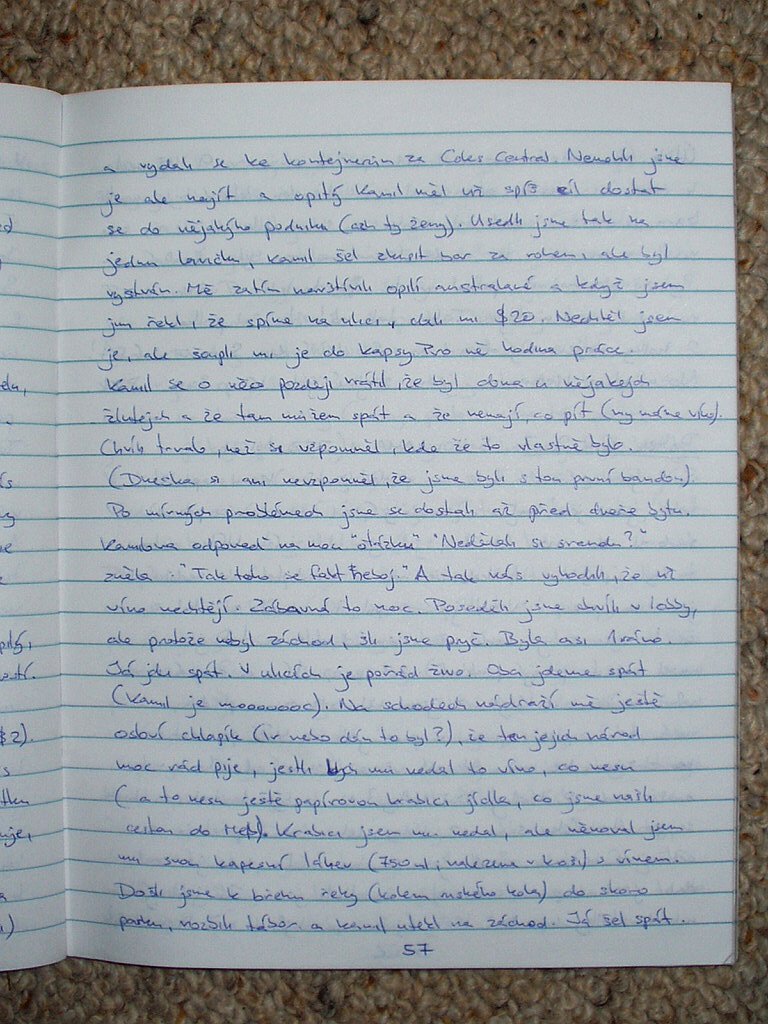 a vydali se ke kontejnerům za Coles Central. Nemohli jsme
je ale najít a opitý Kamil měl už spíš cíl dostat
se do nějakýho podniku (ach ty ženy). Usedli jsme tak na
jednu lavičku, Kamil šel zkusit bar za rohem, ale byl
vystrnn. Mě zatím navštívili opilí australané a když jsem
jim řekl, že spíme na ulici, dali mi $20. Nechtěl jsem
je, ale šoupli mi je do kapsy. Pro mě hodina práce.
Kamil se o něco pozdeji vrátil, že byl doma u nějakejch
žlutejch a že tam můžem spát a že nemají, co pít (my máme víno).
Chvíli trvalo, než si vzpomněl, kde že to vlastně bylo.
(Dneska si ani nevzpomněl, že jsme byli s tou první bandou)
Po mírných problémech jsme se dostali až před dveře bytu.
Kamilova odpověď na mou "otázku" "Neděláš si srandu?"
zněla: "Tak toho se fakt neboj." A tak nás vyhodili, že už
víno nechtějí. Zábavná to noc. Poseděli jsme chvíli v lobby,
ale protože nebyl záchod, šli jsme pryč. Bylo asi 1 ráno.
Já jdu spát. V ulicích je pořád živo. Oba jdeme spát
(Kamil je moooooc). Na schodech nádraží mě ještě
osloví chlapík (Ir nebo kdo to byl?), že ten jejich národ
moc rád pije, jestli bych mu nedal to víno, co nesu
(a to nesu ještě papírovou krabici jídla, co jsme našli
cestou do). Krabici jsem mu nedal, ale věnoval jsem
mu svou kapesní láhev (750 ml, nalezena v koši) s vínem.
Došli jsme k břehu řeky (kolem ruského kola) do skoro
parku, rozbili tábor a Kamil utekl na záchod. Já šel spát.
57